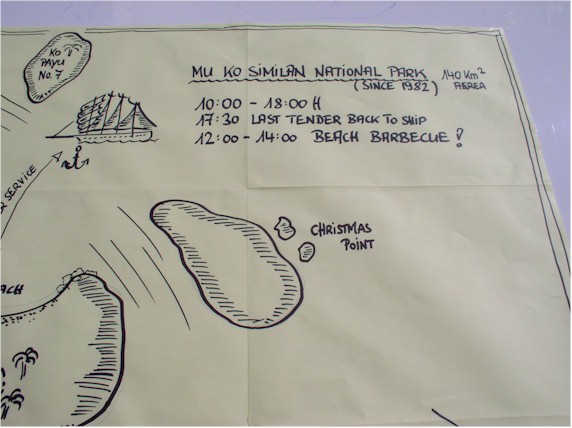 KO
PAYU
No. 7
MU KO SIMILAN NATIONAL PARK 140 Km²
(SINCE 1982) AEREA
10:00 - 18:00 H
17:30 LAST TENDER BACK TO SHIP
12:00 - 14:00 BEACH BARBECUE!
SERVICE
CHRISTMAS
POINT